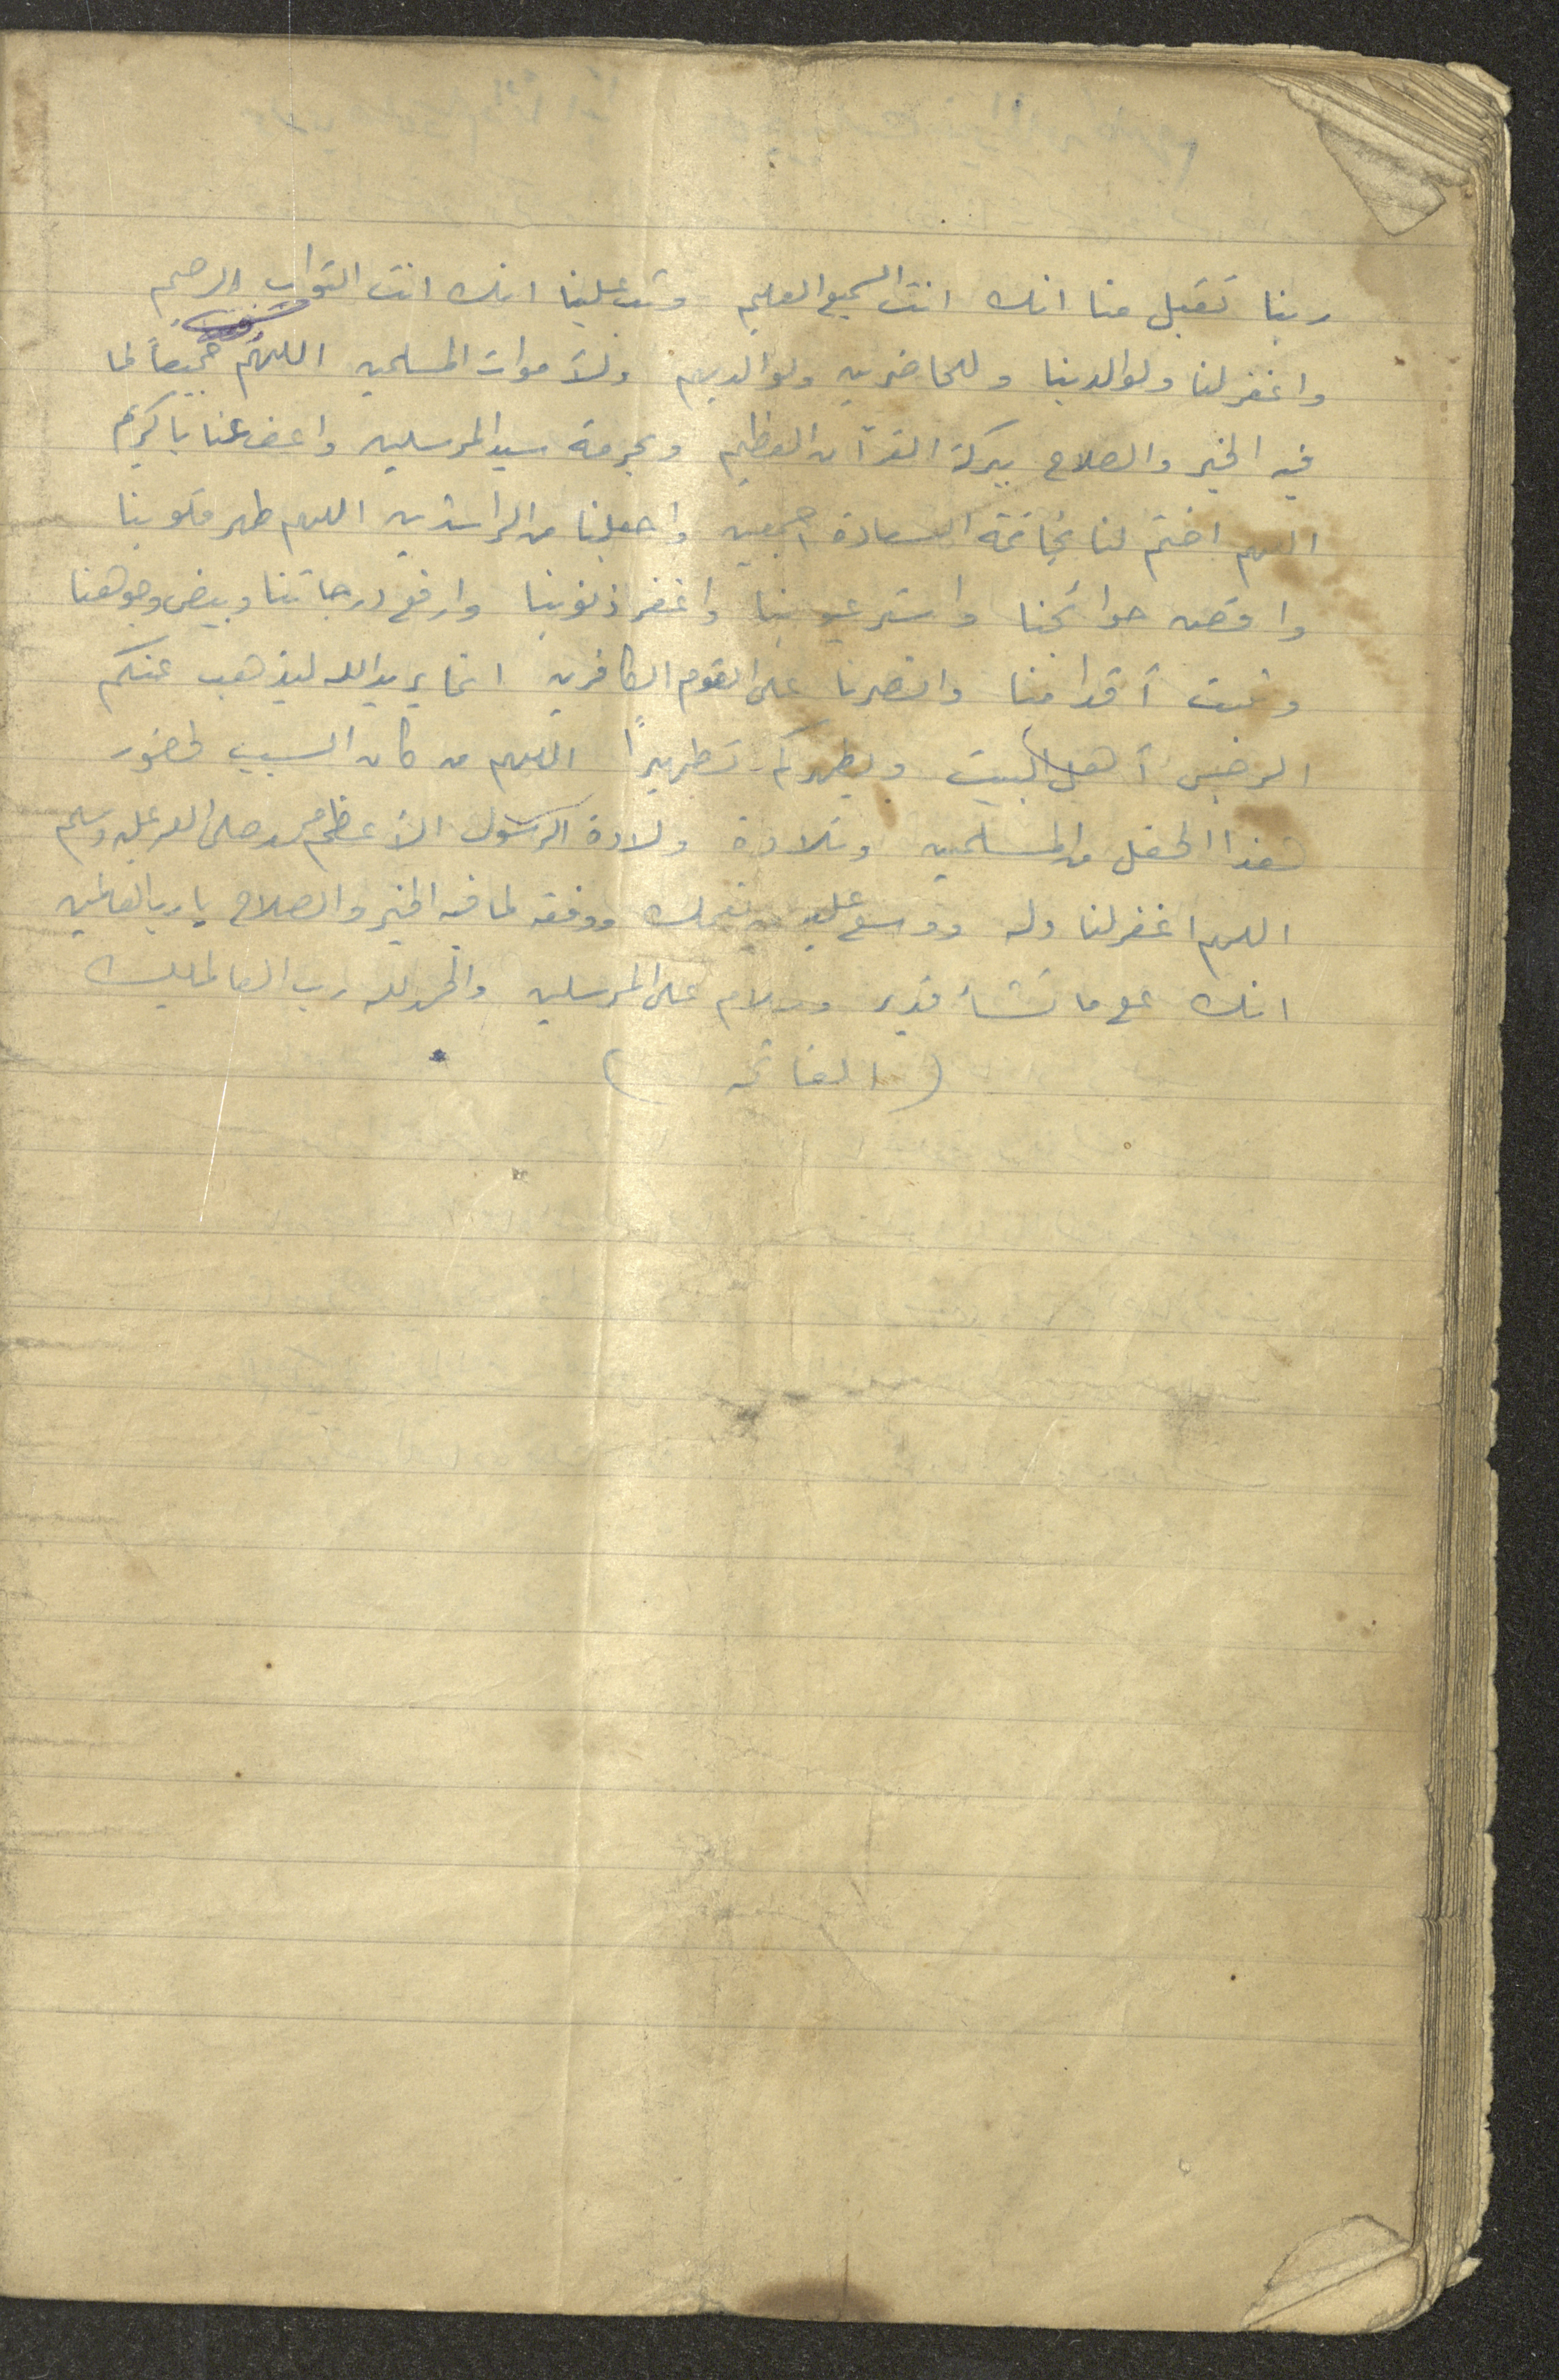 ربنا تقبل منا انك انت السميع العليم وتب علينا انك انت التواب الرحيم
واغفر لنا ولوالدينا وللحاضرين ولوالديهم ولأموات المسلمين اللهم جميعاً لما
فيه الخير والصلاح ببركة القرآن العظيم وبحرمة سيد المرسلين واعف عنا يا كريم
اللهم اختم لنا بخاتمة السعادة اجمعين واجعلنا من الراشدين اللهم طهر قلوبنا
واقض حوائجنا واستر عيوبنا واغفر ذنوبنا وارفع درجاتنا وبيض وجوهنا
وثبت أقدامنا وانصرنا على القوم الكافرين انما يريد الله ليذهب عنكم
الرجس أهل البيت ويطهركم تطهيراً اللهم من كان السبب لحضور
هذا الحفل من المسلمين وتلاوة ولادة الرسول الأعظم محمد صلى الله عليه وسلم
اللهم اغفر لنا وله ووسع عليه نعمك ووفقه لما فيه الخير والصلاح يا رب العالمين
انك على ما تشاء قدير وسلام على المرسلين والحمد لله رب العالمين
( الفاتحه )